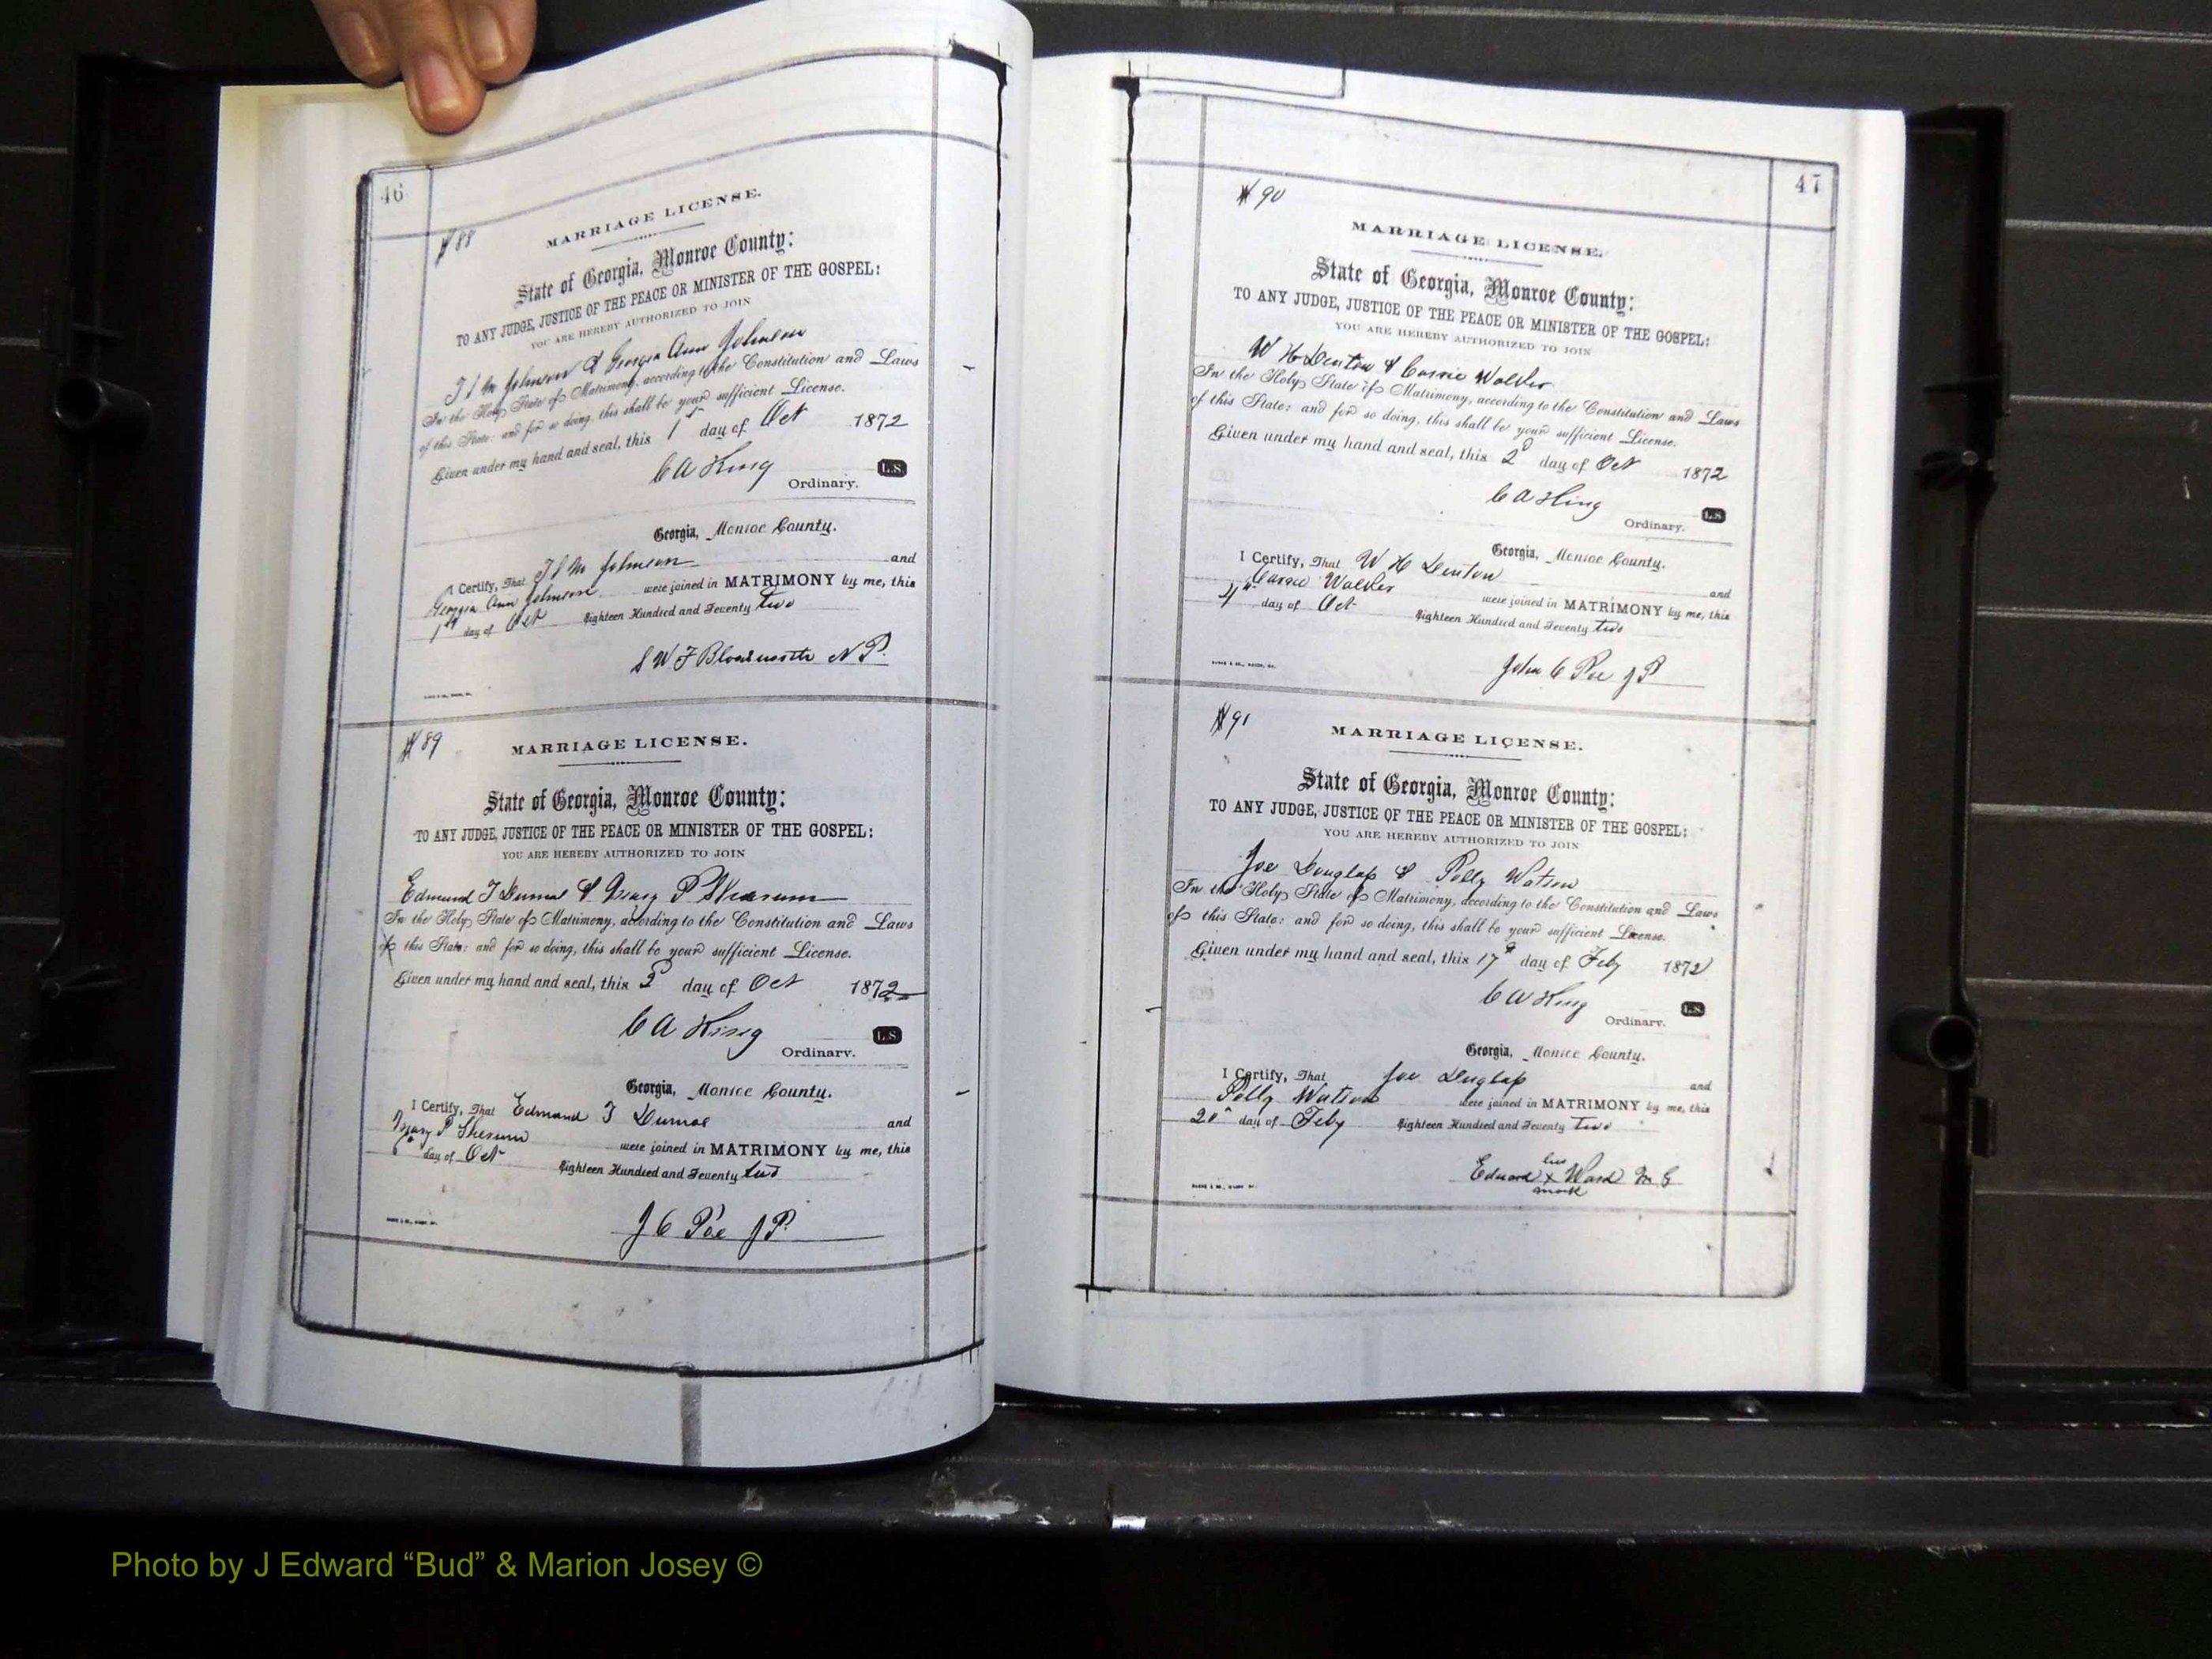 46
# 88
MARRIAGE LICENSE.
State of Georgia, Monroe County:
TO ANY JUDGE, JUSTICE OF THE PEACE OR MINISTER OF THE GOSPEL:
YOU ARE HEREBY AUTHORIZED TO JOIN
M Johnson & Georgia Ann Johnson
In the Holy State of Matrimony, according to the Constitution and Laws
of this State: and for so doing, this shall be your sufficient License.
Given under my hand and seal, this 1st day of Oct 1872
C A King L.S.
Ordinary.
Georgia, Monroe County.
I Certify, That M Johnson and
Georgia Ann Johnson were joined in MATRIMONY by me, this
1st day of Oct Eighteen Hundred and Seventy two
S W F N P.
# 89
MARRIAGE LICENSE.
State of Georgia, Monroe County:
TO ANY JUDGE, JUSTICE OF THE PEACE OR MINISTER OF THE GOSPEL:
YOU ARE HEREBY AUTHORIZED TO JOIN
Edmund T & Mary P
In the Holy State of Matrimony, according to the Constitution and Laws
of this State: and for so doing, this shall be your sufficient License.
Given under my hand and seal, this day of Oct 1872
C A King L.S
Ordinary.
Georgia, Monroe County.
I Certify, That Edmund T and
Mary P were joined in MATRIMONY by me, this
day of Oct Eighteen Hundred and Seventy two
J C Poe J P.
47
# 90
MARRIAGE LICENSE.
State of Georgia, Monroe County:
TO ANY JUDGE, JUSTICE OF THE PEACE OR MINISTER OF THE GOSPEL:
YOU ARE HEREBY AUTHORIZED TO JOIN
W H Denton & Carrie Walker
In the Holy State of Matrimony, according to the Constitution and Laws
of this State: and for so doing, this shall be your sufficient License.
Given under my hand and seal, this 2d day of Oct 1872
C A King L.S.
Ordinary.
Georgia, Monroe County.
I Certify, That W H Denton and
Carrie Walker were joined in MATRIMONY by me, this
4th day of Oct Eighteen Hundred and Seventy two
John C Poe J P
# 91
MARRIAGE LICENSE.
State of Georgia, Monroe County:
TO ANY JUDGE, JUSTICE OF THE PEACE OR MINISTER OF THE GOSPEL:
YOU ARE HEREBY AUTHORIZED TO JOIN
Joe Douglass & Polly Watson
In the Holy State of Matrimony, according to the Constitution and Laws
of this State: and for so doing, this shall be your sufficient License.
Given under my hand and seal, this 17th day of Feby 1872
C A King L.S.
Ordinary.
Georgia, Monroe County.
I Certify, That Joe Duglass and
Polly Watson were joined in MATRIMONY by me, this
20th day of Feby Eighteen Hundred and Seventy two
his
Edward x Ward M G
mark
Photo by J Edward “Bud” & Marion Josey ©